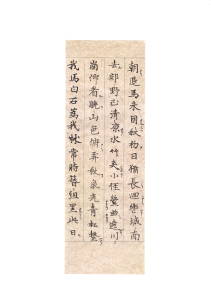 朝退馬未困秋初日猶長回轡城南
去郊野正清涼水竹夾小徑縈迴遶川
崗仰看晚山色俯弄秋泉光青松繫
我馬白石為我牀常時簪組累此日